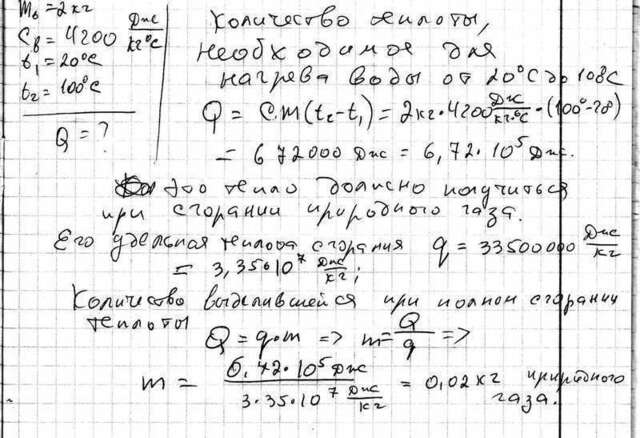 m_в = 2 кг
c_в = 4200 Дж/кг°С
t₁ = 20°С
t₂ = 100°С
Q = ?
Количество теплоты,
необходимое для
нагрева воды от 20°С до 100°С
Q = c.m(t₂-t₁) = 2кг·4200 Дж/кг·°С·(100°-20)
= 672000 Дж = 6,72·10⁵ Дж.
это тепло должно получиться
при сгорании природного газа.
Его удельная теплота сгорания q = 33500000 Дж/кг
= 3,35·10⁷ Дж/кг;
Количество выделившейся при полном сгорании
теплоты
Q = q·m => m = Q/q =>
m = 6,72·10⁵ Дж / 3.35·10⁷ Дж/кг = 0,02 кг природного
газа.